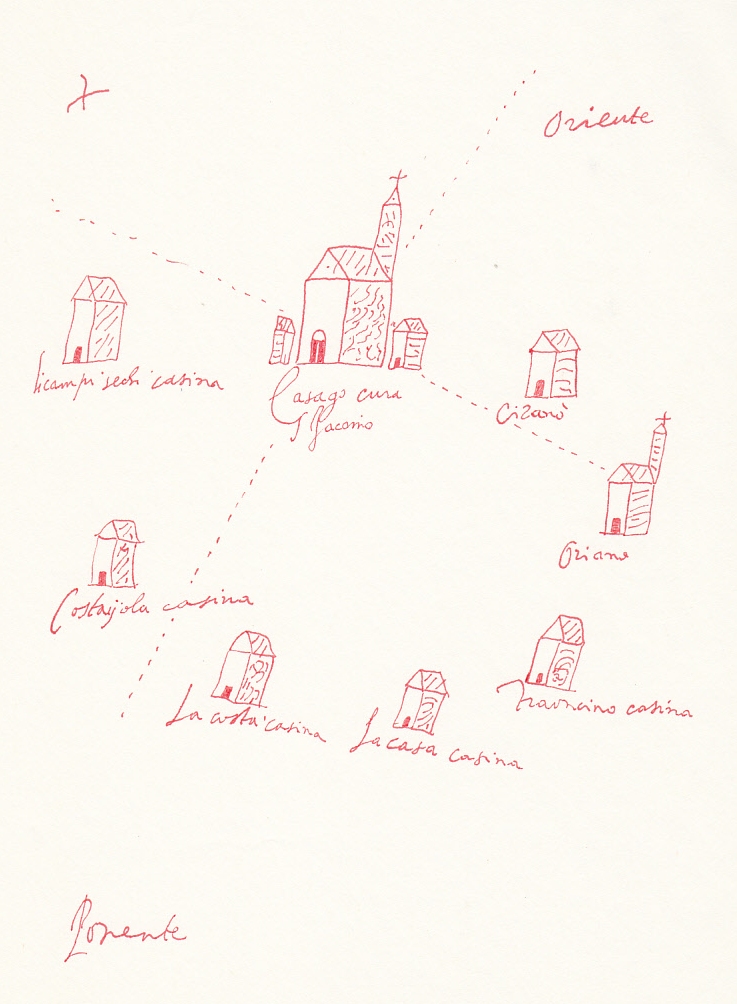 Oriente
Li campi sechi casina
Casago cura
S Jacomo
Cizanò
Oriano
Costaijola casina
La costa casina
La casa casina
Travncino casina
Ponente